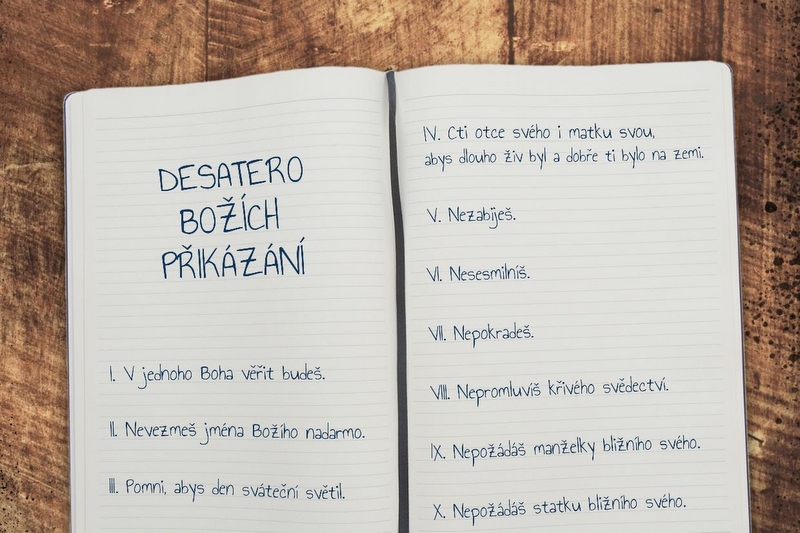 DESATERO
BOŽÍCH
PŘIKÁZÁNÍ
I. V jednoho Boha věřit budeš.
II. Nevezmeš jména Božího nadarmo.
III. Pomni, abys den sváteční světil.
IV. Cti otce svého i matku svou,
abys dlouho živ byl a dobře ti bylo na zemi.
V. Nezabiješ.
VI. Nesesmilníš.
VII. Nepokradeš.
VIII. Nepromluvíš křivého svědectví.
IX. Nepožádáš manželky bližního svého.
X. Nepožádáš statku bližního svého.